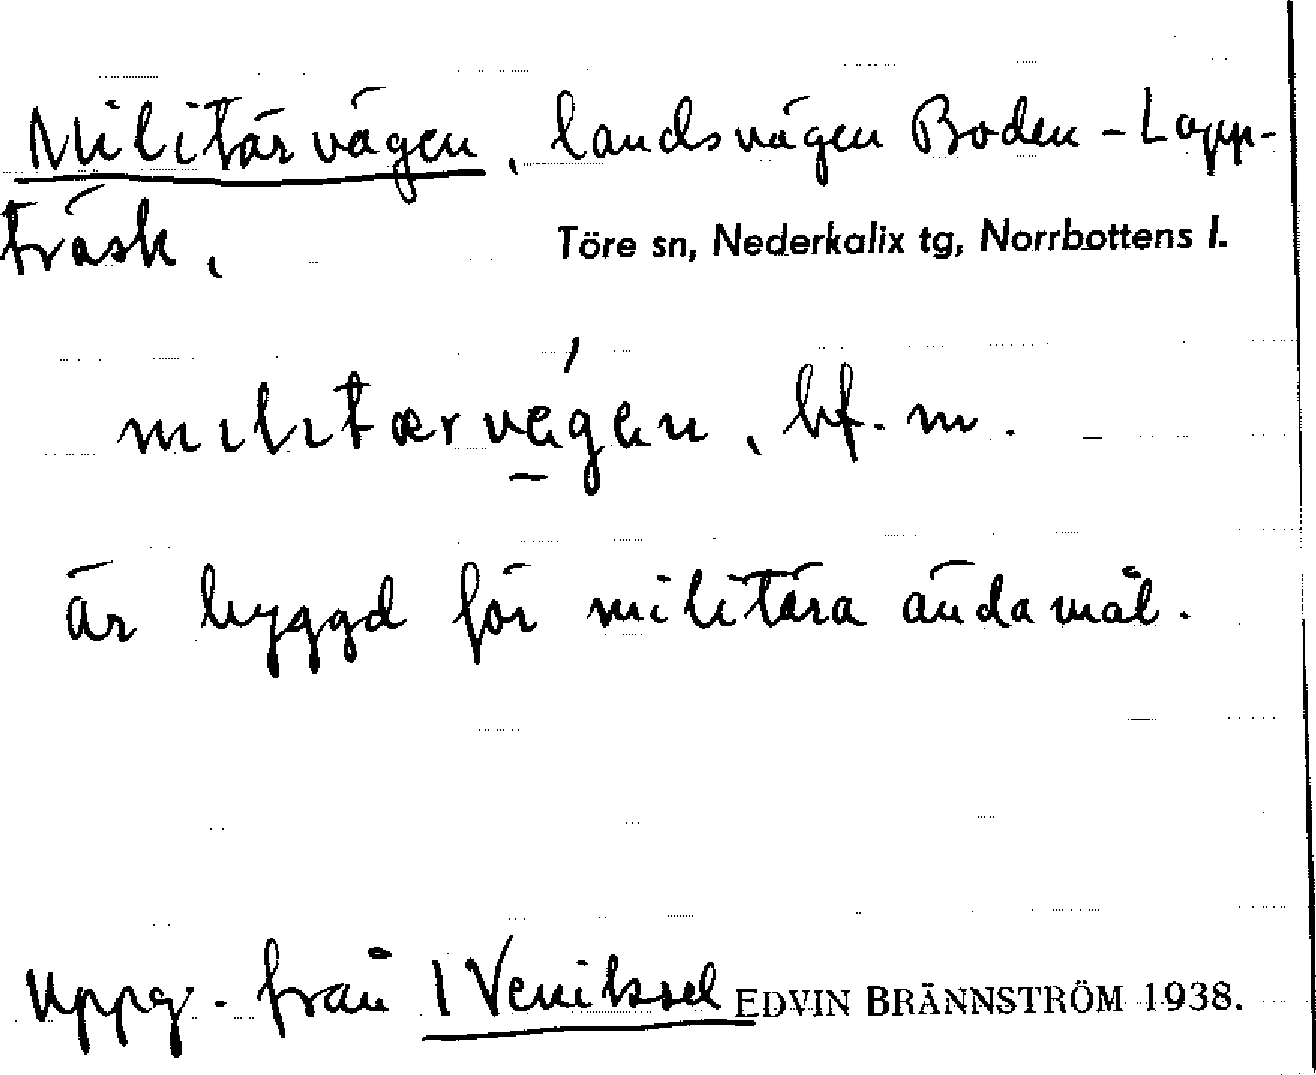 Militärvägen, landsvägen Boden-Lapp-
träsk,
Töre sn, Nederkalix tg, Norrbottens l.
bf. m.
är byggd för militära ändamål.
Uppg. från
EDVIN BRÄNNSTRÖM 1938.